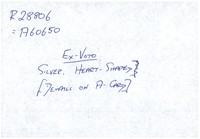 R28806
= A60650
Ex-Voto
Silver, Heart-Shaped}
[Details on A-Card]